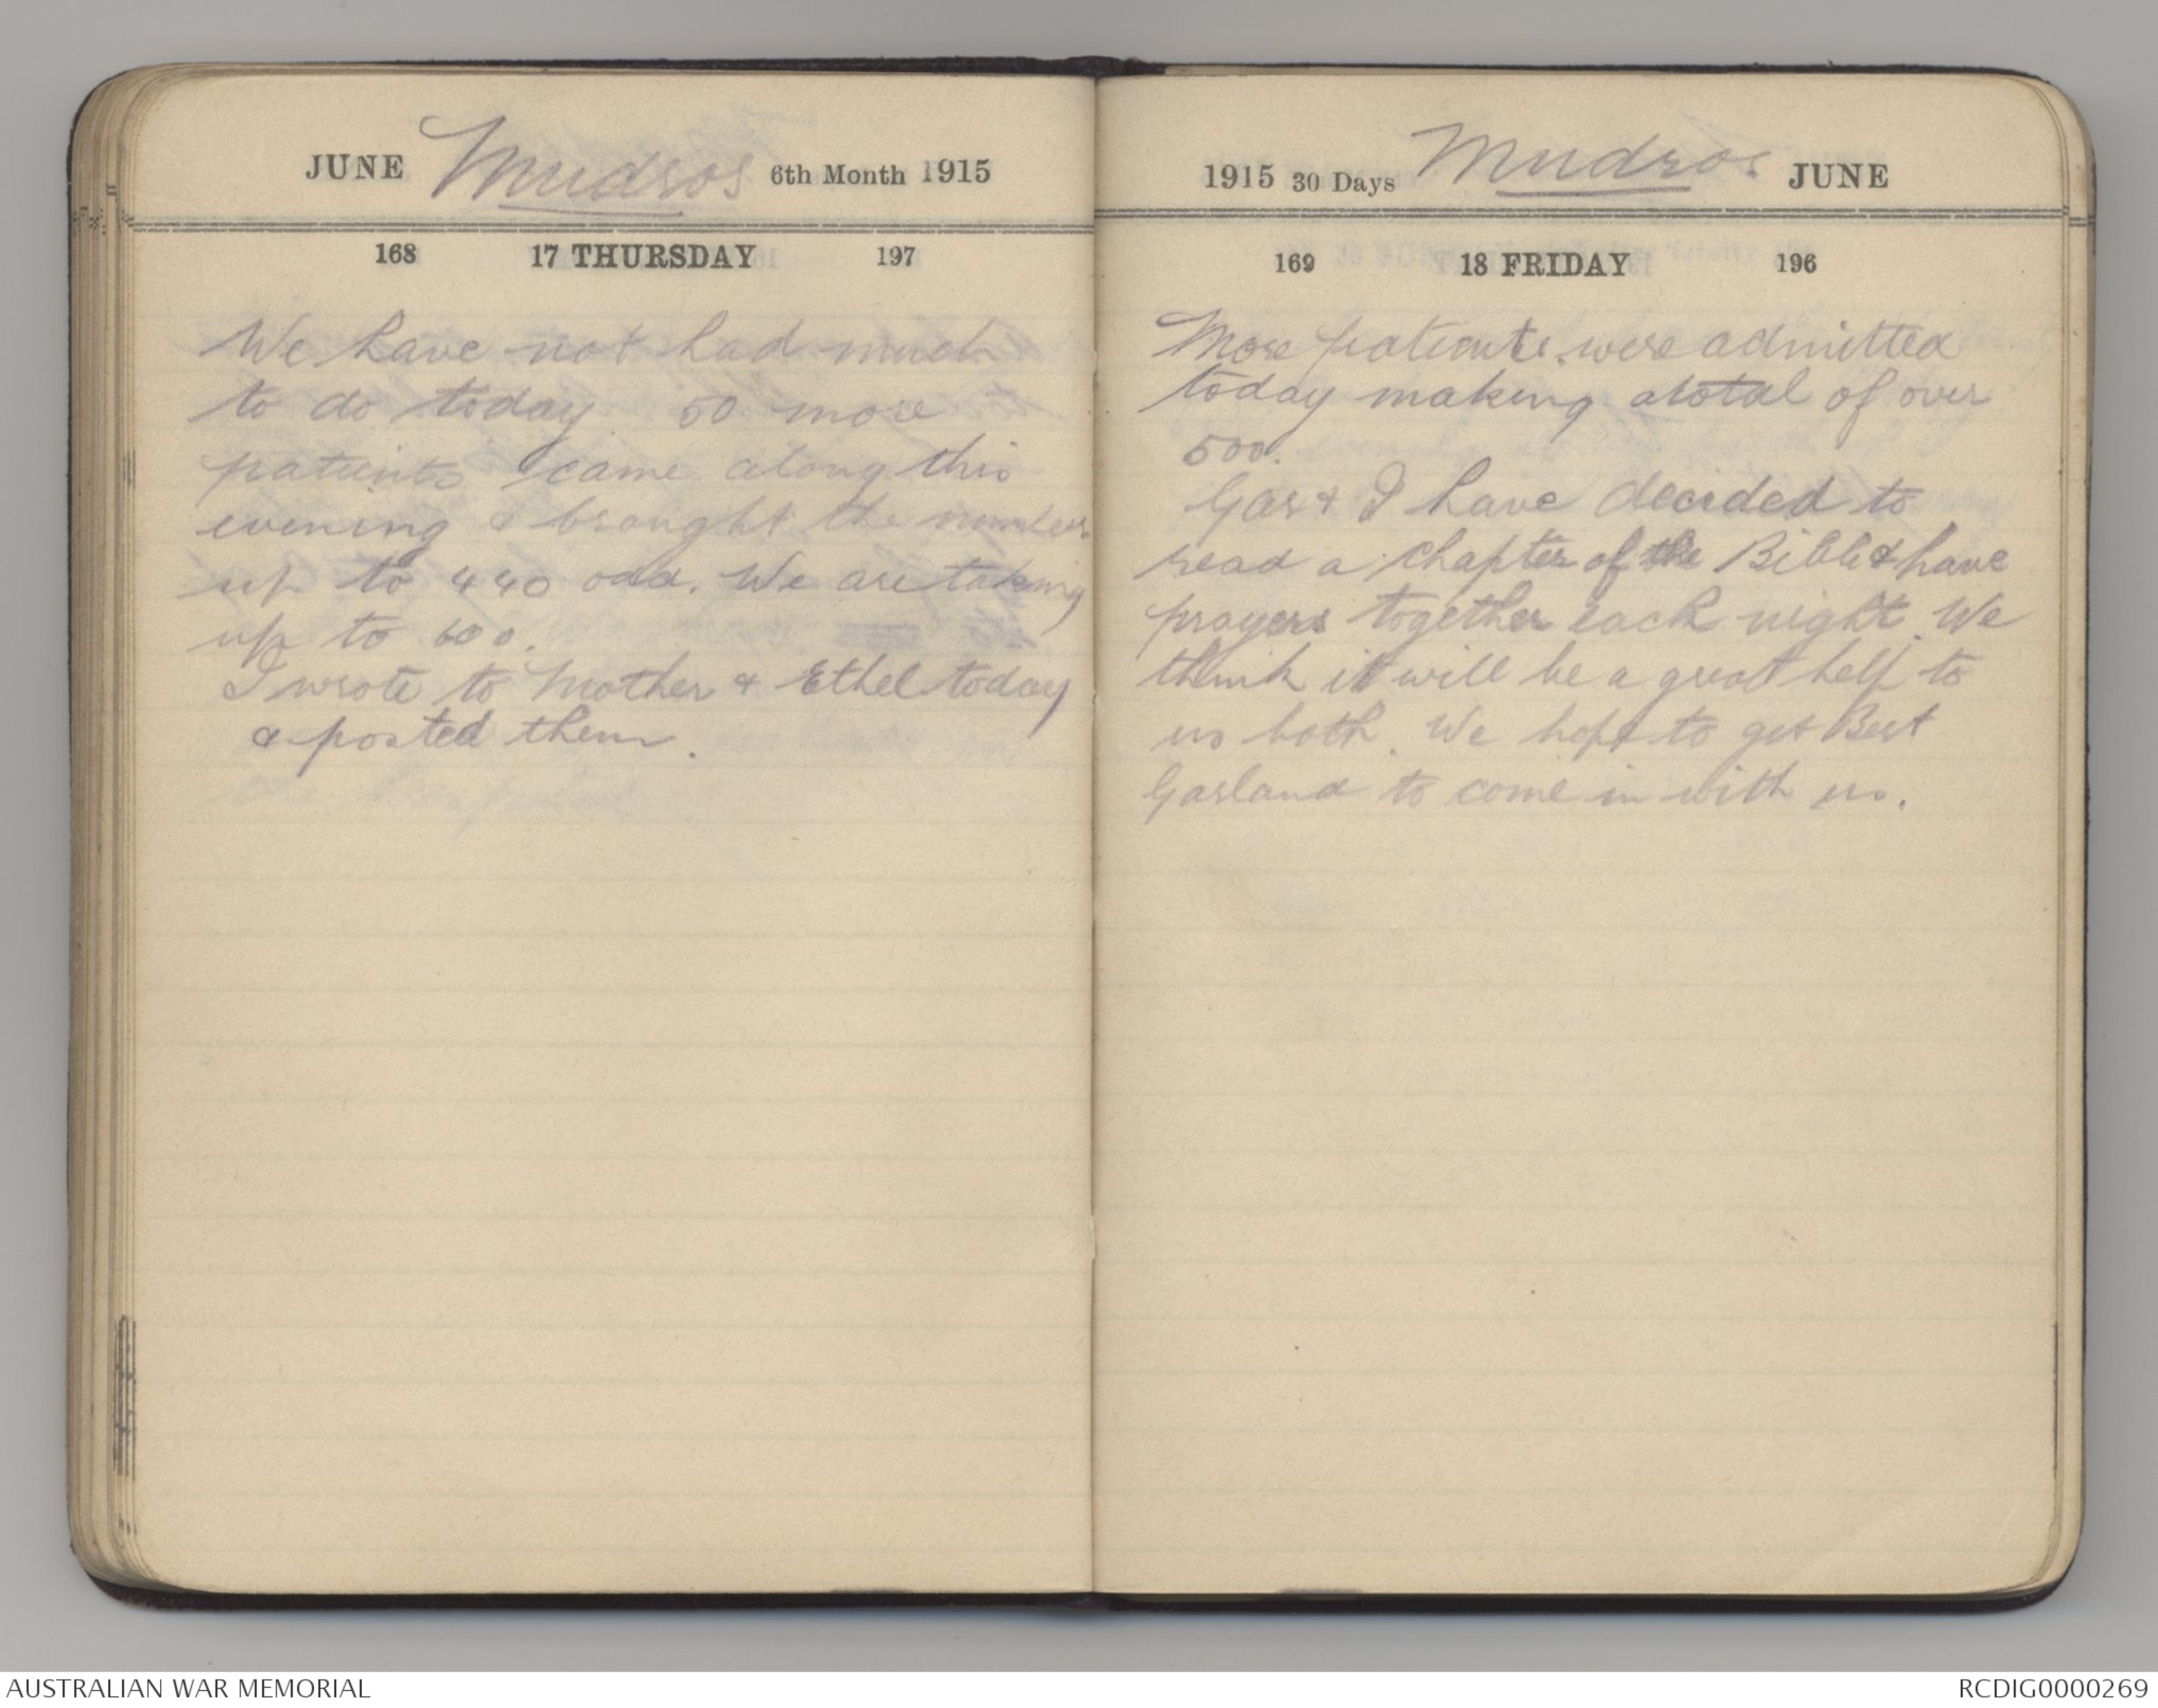 JUNE Mudros 6th Month 1915
168 17 THURSDAY 197
We have not had much
to do today. 50 more
patients came along this
evening & brought the number
up to 440 odd. We are taking
up to 600.
I wrote to Mother & Ethel today
& posted them.
1915 30 Days Mudros JUNE
169 18 FRIDAY 196
More patients were admitted
today making a total of over
500.
Gas & I have decided to
read a chapter of the Bible & have
prayers together each night. We
think it will be a great help to
us both. We hope to get Bert
Garland to come in with us.
AUSTRALIAN WAR MEMORIAL
RCDIG0000269